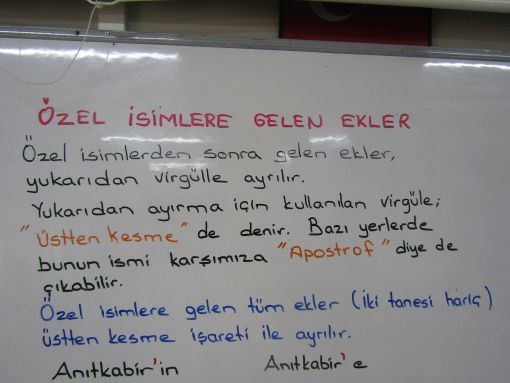 ÖZEL İSİMLERE GELEN EKLER
Özel isimlerden sonra gelen ekler,
yukarıdan virgülle ayrılır.
Yukarıdan ayırma için kullanılan virgüle;
"Üstten kesme" de denir. Bazı yerlerde
bunun ismi karşımıza "Apostrof" diye de
çıkabilir.
Özel isimlere gelen tüm ekler (İki tanesi hariç)
üstten kesme işareti ile ayrılır.
Anıtkabir'in Anıtkabir'e